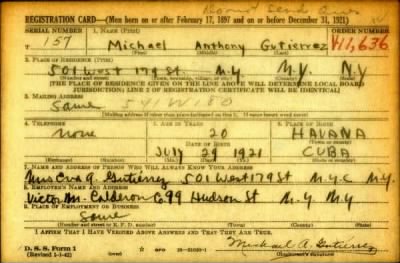 REGISTRATION CARD—(Men born on or after February 17, 1897 and on or before December 31, 1921)
SERIAL NUMBER 1. NAME (Print) ORDER NUMBER
157 Michael Anthony Gutierrez V11,636
(First) (Middle) (Last)
2. PLACE OF RESIDENCE (Print)
501 West 179 St. N.Y. N.Y. N.Y
(Number and street) (Town, township, village, or city) (County) (State)
[THE PLACE OF RESIDENCE GIVEN ON THE LINE ABOVE WILL DETERMINE LOCAL BOARD
JURISDICTION; LINE 2 OF REGISTRATION CERTIFICATE WILL BE IDENTICAL]
3. MAILING ADDRESS
Same 541 W 180
[Mailing address if other than place indicated on line 2. If same insert word same]
4. TELEPHONE 5. AGE IN YEARS 6. PLACE OF BIRTH
none 20 HAVANA
DATE OF BIRTH (Town or county)
July 29 1921 CUBA
(Exchange) (Number) (Mo.) (Day) (Yr.) (State or country)
7. NAME AND ADDRESS OF PERSON WHO WILL ALWAYS KNOW YOUR ADDRESS
Mrs Eva G. Gutierrez 501 West 179 St N.Y.C N.Y.
8. EMPLOYER'S NAME AND ADDRESS
Victor M. Calderon Co 99 Hudson St N.Y. N.Y
9. PLACE OF EMPLOYMENT OR BUSINESS
Same
(Number and street or R. F. D. number) (Town) (County) (State)
I AFFIRM THAT I HAVE VERIFIED ABOVE ANSWERS AND THAT THEY ARE TRUE.
D. S. S. Form 1 GPO Michael A. Gutierrez
(Revised 1-1-42) (Registrant's signature)